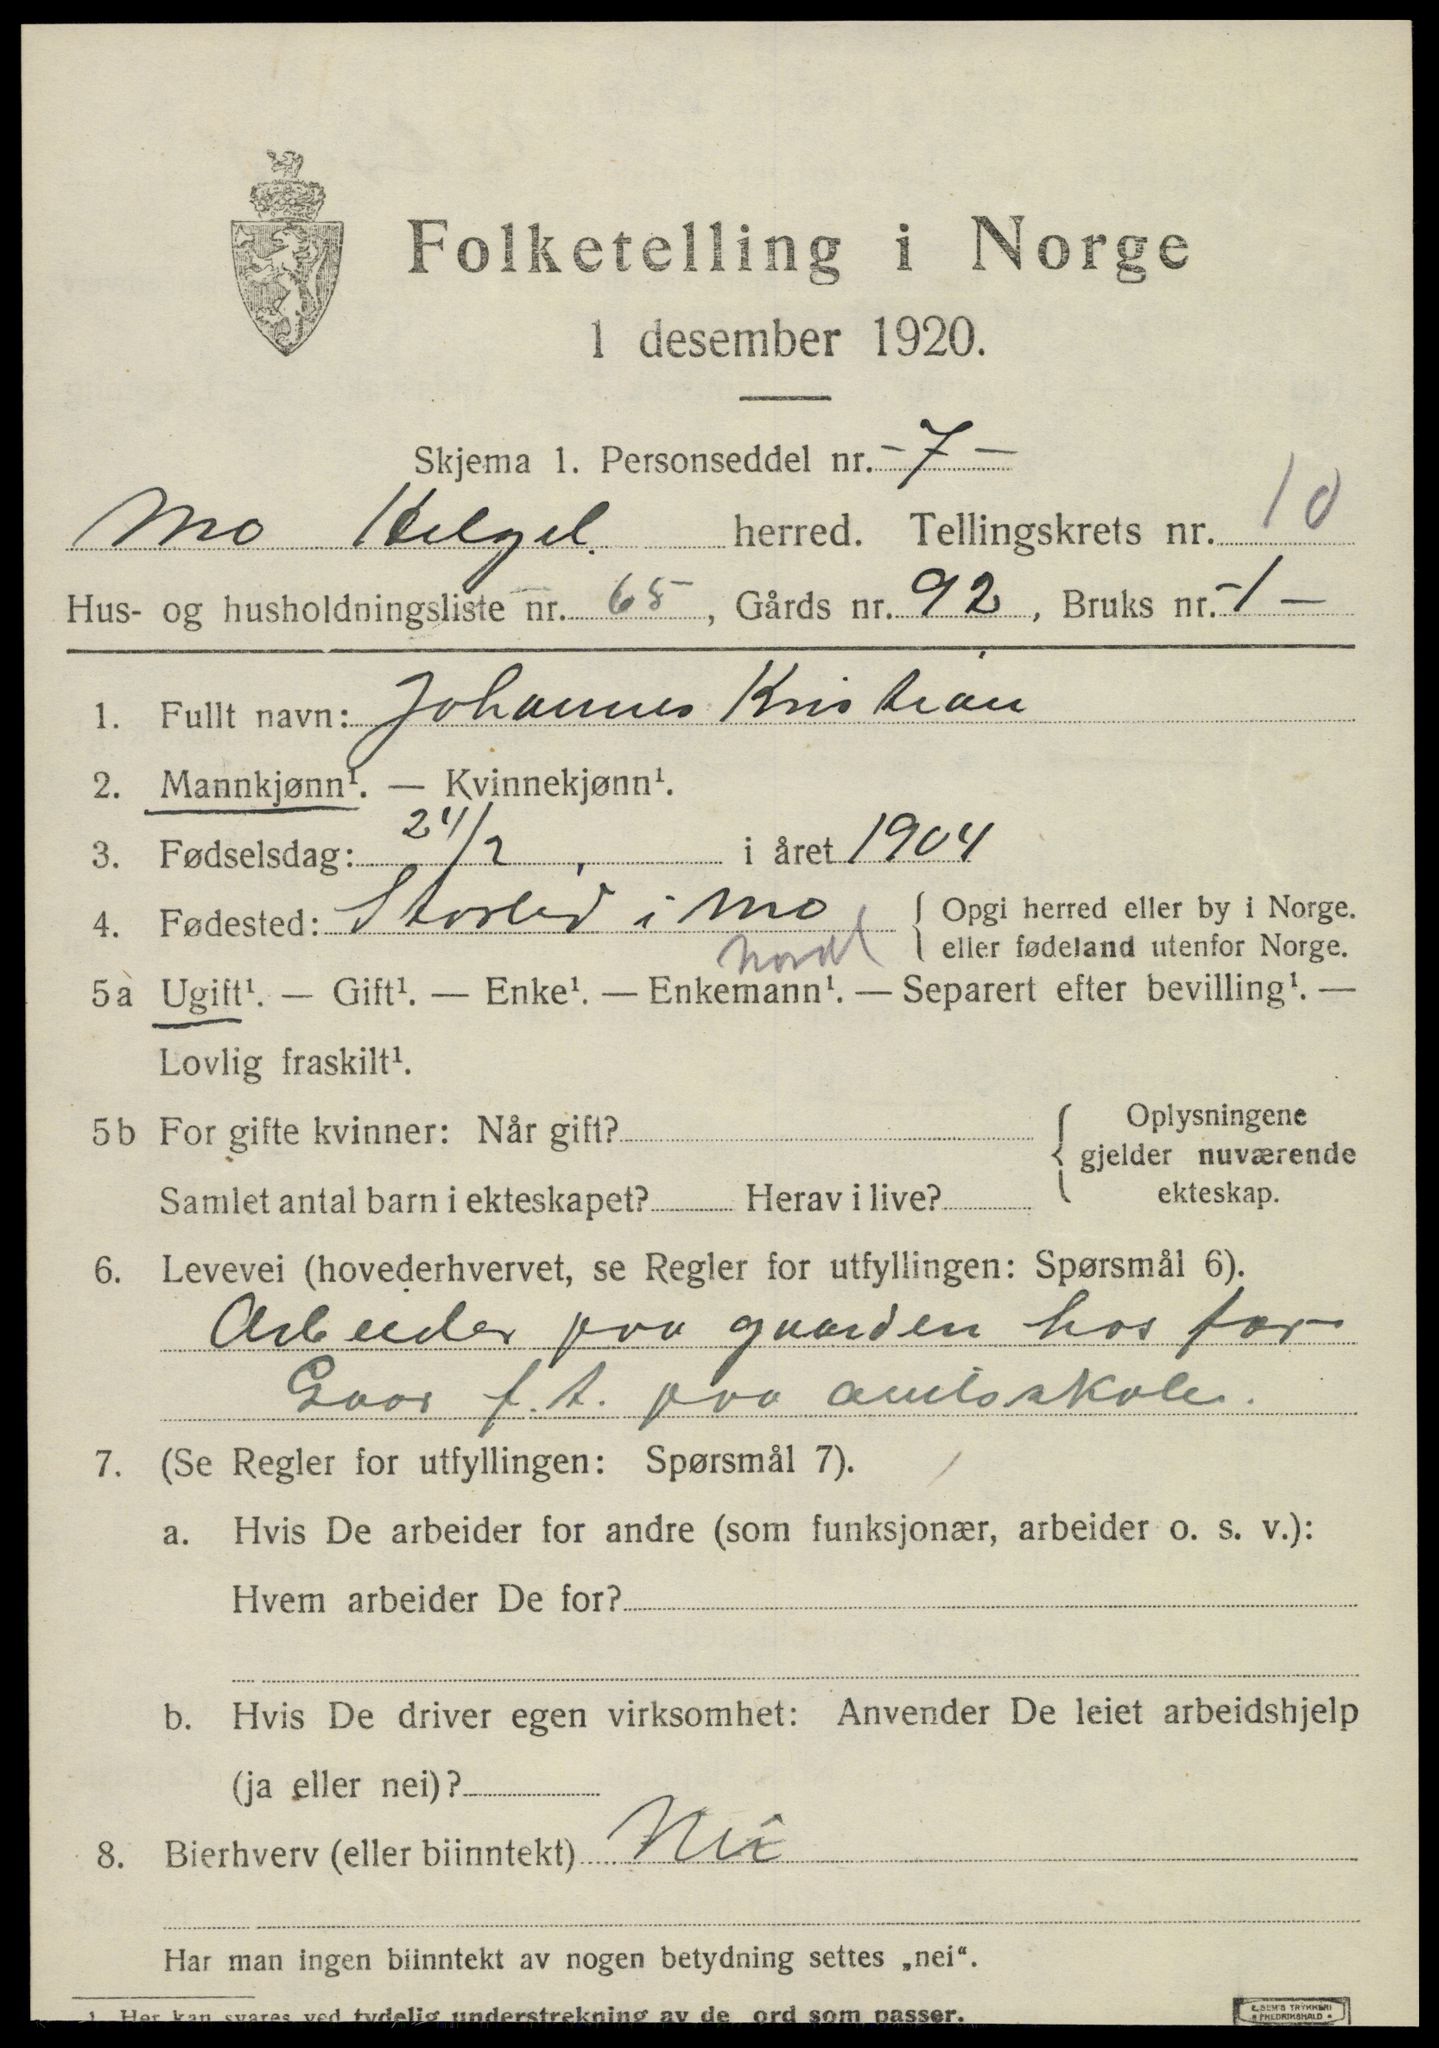 Folketelling i Norge
1 desember 1920.
Skjema 1. Personseddel nr. -7-
Mo Helgel. herred. Tellingskrets nr. 10
Hus- og husholdningsliste nr. 65, Gårds nr. 92, Bruks nr. -1-
1. Fullt navn: Johannes Kristian
2. Mannkjønn¹. — Kvinnekjønn¹.
3. Fødselsdag: 24/2, i året 1904
4. Fødested: Storlid i Mo { Opgi herred eller by i Norge.
Nordl { eller fødeland utenfor Norge.
5a Ugift¹. — Gift¹. — Enke¹. — Enkemann¹. — Separert efter bevilling¹. —
Lovlig fraskilt¹.
5b For gifte kvinner: Når gift? { Oplysningene
gjelder nuværende
Samlet antal barn i ekteskapet? Herav i live? ekteskap.
6. Levevei (hovederhvervet, se Regler for utfyllingen: Spørsmål 6).
Arbeider paa gaarden hos far
Gaar f. t. paa amtsskole.
7. (Se Regler for utfyllingen: Spørsmål 7).
a. Hvis De arbeider for andre (som funksjonær, arbeider o. s. v.):
Hvem arbeider De for?
b. Hvis De driver egen virksomhet: Anvender De leiet arbeidshjelp
(ja eller nei)?
8. Bierhverv (eller biinntekt) Nei
Har man ingen biinntekt av nogen betydning settes „nei“.
1. Her kan svares ved tydelig understrekning av de ord som passer.
E. SEM'S TRYKKERI
FREDRIKSHALD